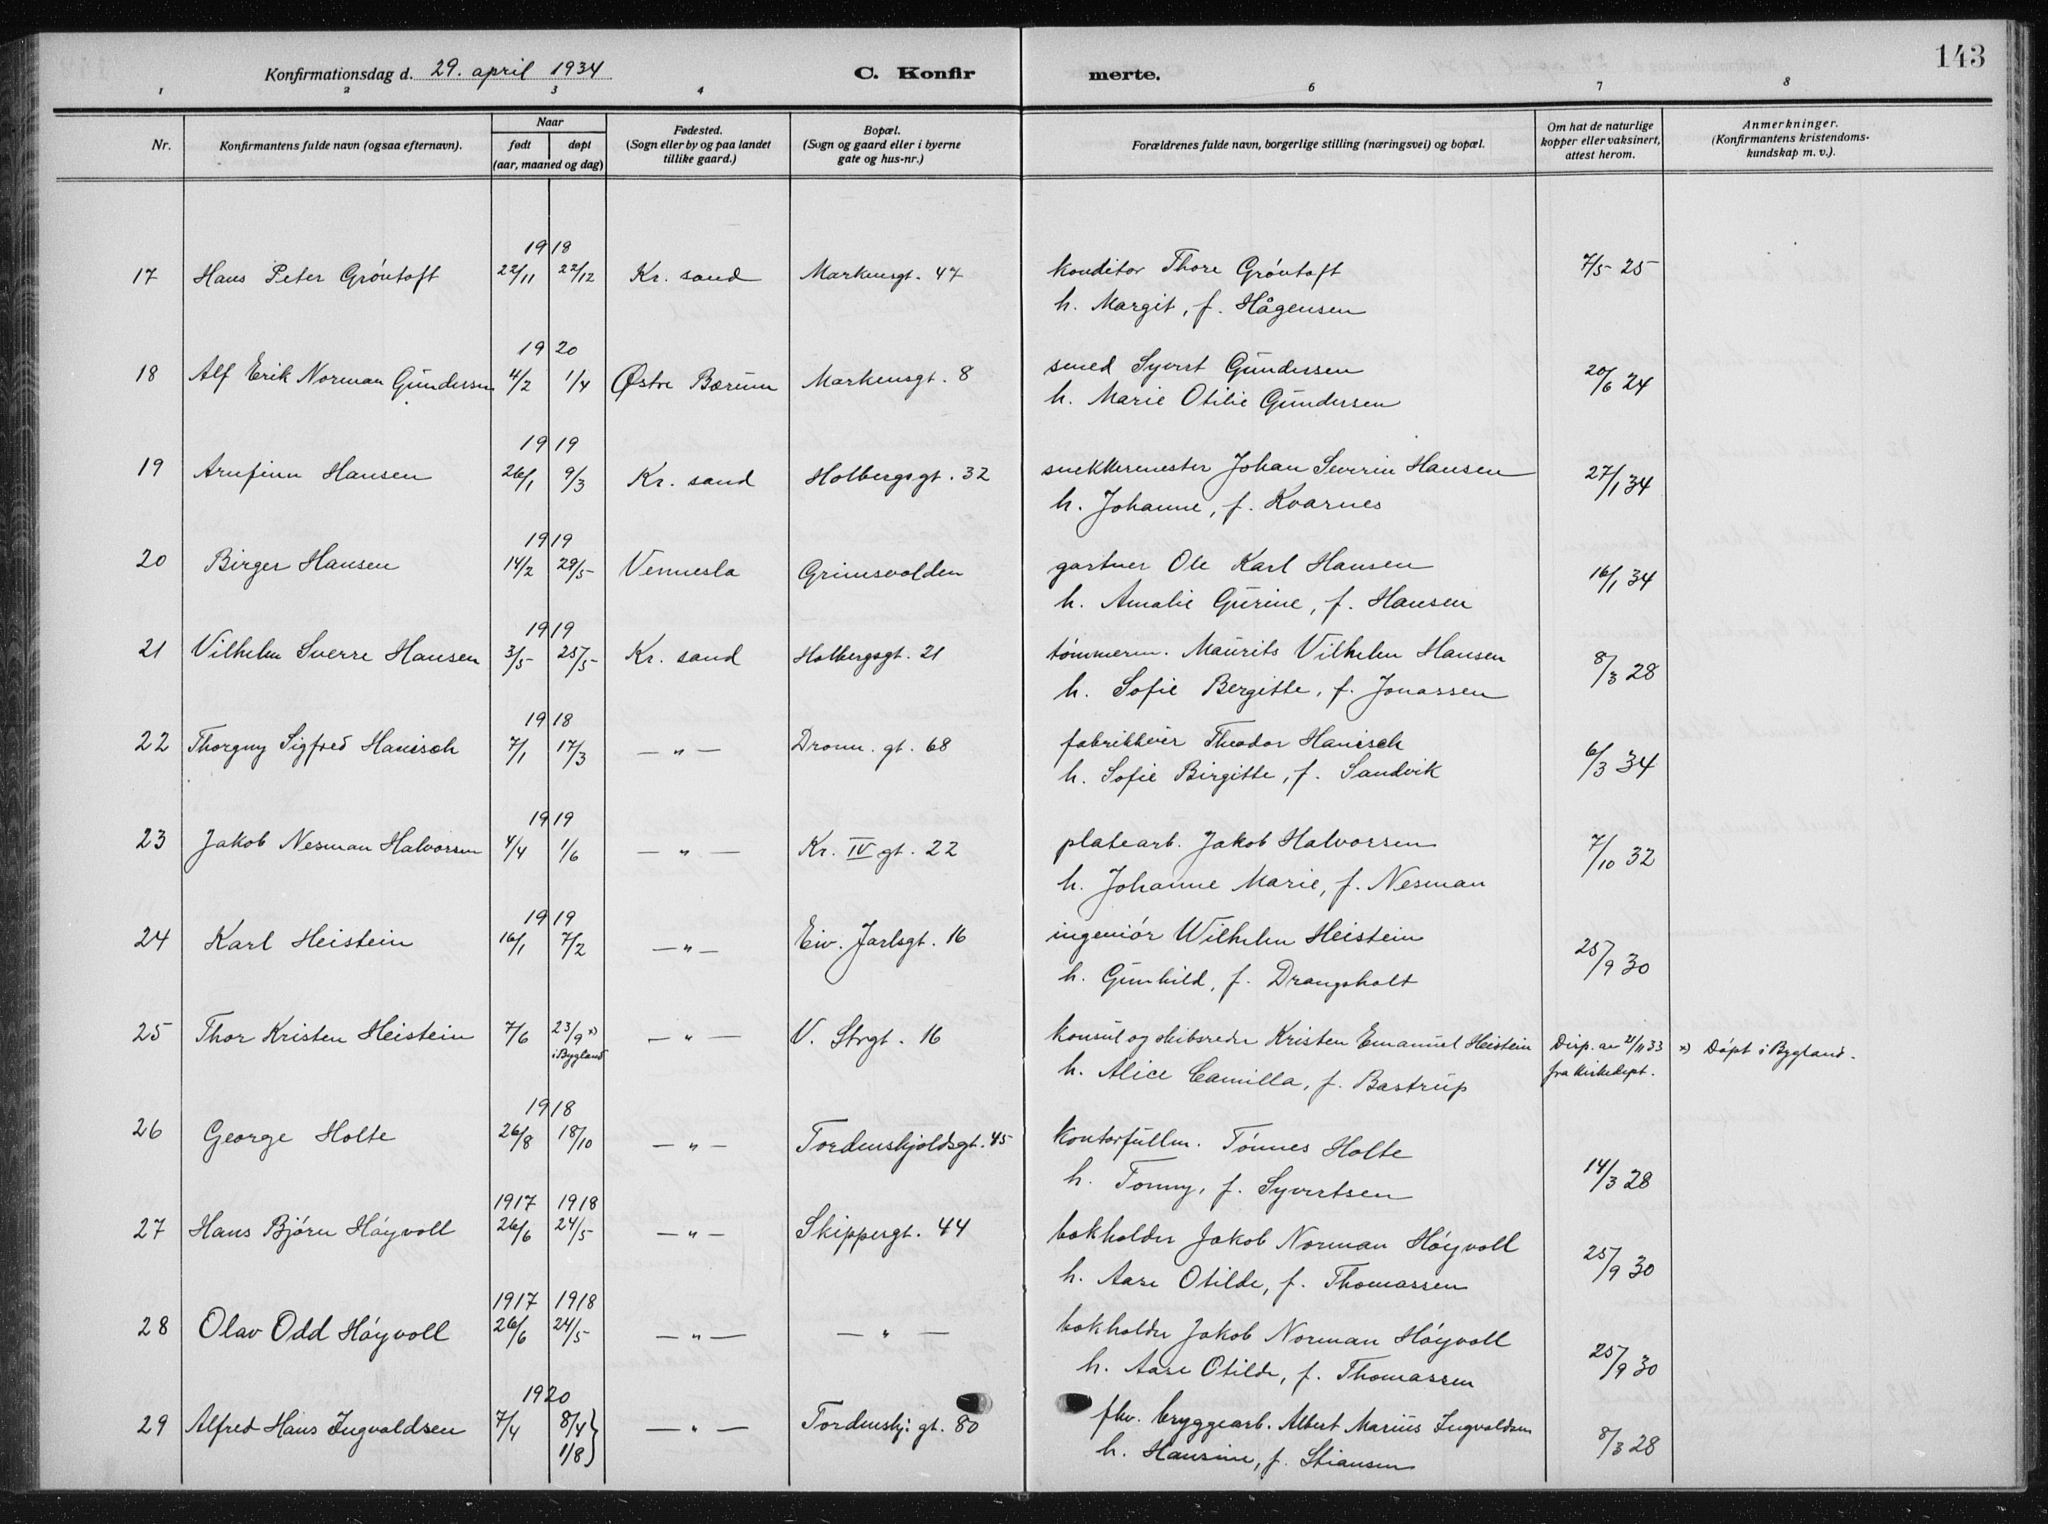 143
Konfirmationsdag d. 29. april 1934
C. Konfirmerte.
1 2 3 4 6 7 8
Nr.
Konfirmantens fulde navn (ogsaa efternavn).
Naar
født døpt
(aar, maaned og dag)
Fødested.
(Sogn eller by og paa landet
tillike gaard.)
Bopæl.
(Sogn og gaard eller i byerne
gate og hus-nr.)
Forældrenes fulde navn, borgerlige stilling (næringsvei) og bopæl.
Om hat de naturlige
kopper eller vaksinert,
attest herom.
Anmerkninger.
(Konfirmantens kristendoms-
kundskap m. v.).
1918
17 Hans Peter Grøntoft 22/11 22/12 Kr. sand Markensgt. 47 konditor Thore Grøntoft 7/5 25
h. Margit, f. Hågensen
1920
18 Alf Erik Norman Gundersen 4/2 1/4 Østre Bærum Markensgt. 8 smed Syvert Gundersen 20/6 24
h. Marie Otilie Gundersen
1919
19 Arnfinn Hansen 26/1 9/3 Kr. sand Holbergsgt. 32 snekkermester Johan Severin Hansen 27/1 34
h. Johanne, f. Kvarnes
1919
20 Birger Hansen 14/2 29/5 Vennesla Grimsvolden gartner Ole Karl Hansen 16/1 34
h. Amalie Gurine, f. Hansen
1919
21 Vilhelm Sverre Hansen 3/5 25/5 Kr. sand Holbergsgt. 21 tømmerm. Maurits Vilhelm Hansen 8/3 28
h. Sofie Bergitte, f. Jonassen
1918
22 Thorguy Sigfred Hanisch 7/1 17/3 — " — Dronn. gt. 68 fabrikkeier Theodor Hanisch 6/3 34
h. Sofie Birgitte, f. Sandvik
1919
23 Jakob Nesman Halvorsen 4/4 1/6 — " — Kr. IV gt. 22 platearb. Jakob Halvorsen 7/10 32
h. Johanne Marie, f. Nesman
1919
24 Karl Heistein 16/1 7/2 — " — Eiv. Jarlsgt. 16 ingeniør Wilhelm Heistein 25/9 30
h. Gunhild, f. Drangsholt
25 Thor Kristen Heistein 7/6 23/9 x) i Bygland — " — V. Strgt. 16 konsul og skibsreder Kristen Emanuel Heistein Disp. av 21/11 33 x) Døpt i Bygland.
h. Alice Camilla, f. Bastrup fra kirkedept.
1918
26 George Holte 26/8 18/10 — " — Tordenskjoldsgt. 45 kontorfullm. Tønnes Holte 14/3 28
h. Tonny, f. Syvertsen
1917 1918
27 Hans Bjørn Høyvoll 26/6 24/5 — " — Skippergt. 44 bokholder Jakob Norman Høyvoll 25/9 30
h. Aase Otilde, f. Thomassen
1917 1918
28 Olav Odd Høyvoll 26/6 24/5 — " — — " — bokholder Jakob Norman Høyvoll 25/9 30
h. Aase Otilde, f. Thomassen
1920
29 Alfred Hans Ingvaldsen 7/4 8/4 } — " — Tordenskj. gt. 80 fhv. bryggearb. Albert Marius Ingvaldsen 8/3 28
1/8 } h. Hansine, f. Stiansen